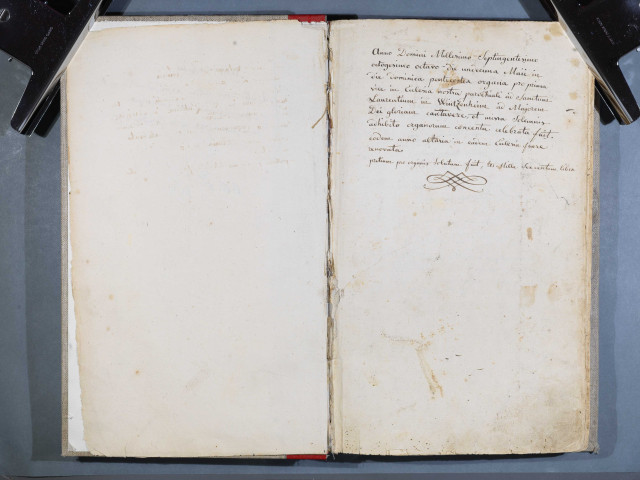 Anno Domini Millesimo Septuagentesimo
octogesimo octavo die undecima Maii in
die dominica pentecostes organa pro prima
vice in Ecclesia nostra parochiali in Sanctum
Laurentium in Wintzenheim in Majorem
Dei gloriam cantavere et missa solemnis
adhibito organorum concentu celebrata fuit.
eodem anno altaria in eadem Ecclesia fuere
renovata
pretium pro organis solutum fuit, ter mille ducentum libra